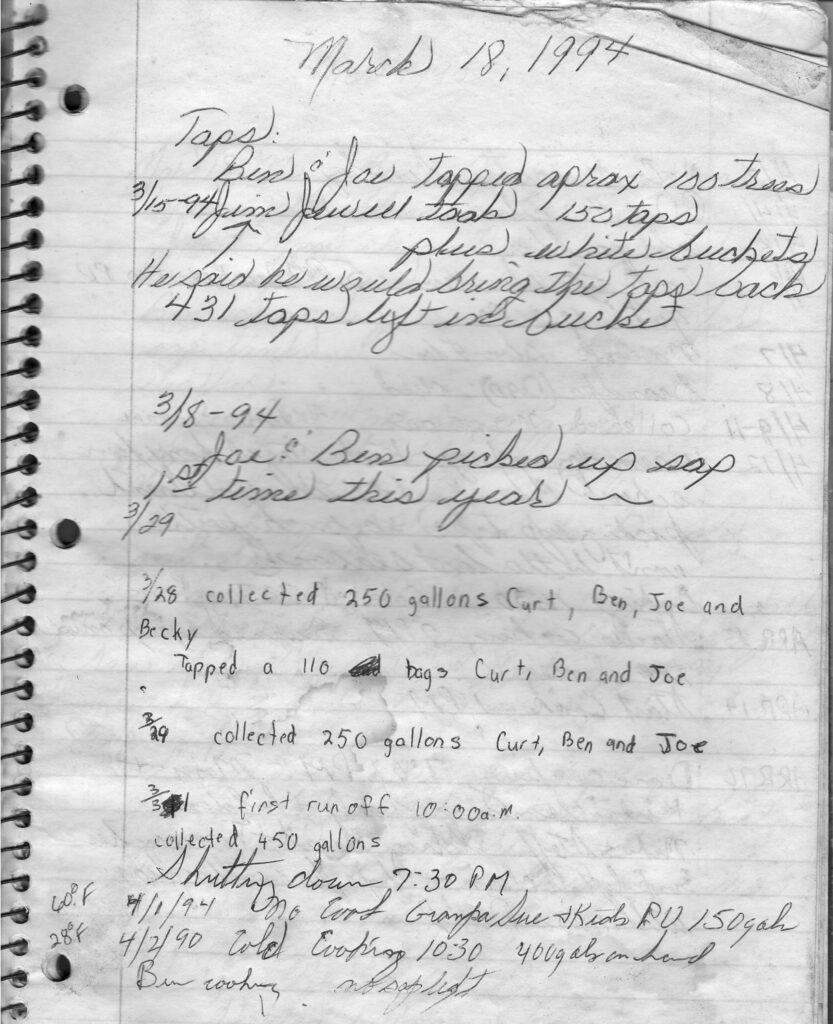 March 18, 1994
Taps:
Ben & Joe tapped aprox 100 trees
3/15-94 Jim Jewell took 150 taps
plus white buckets
He said he would bring the taps back
431 taps left in bucket
3/18-94
Joe & Ben picked up sap
1st time this year ~
3/29
3/28 collected 250 gallons Curt, Ben, Joe and
Becky
Tapped a 110 bags Curt, Ben and Joe
3/29 collected 250 gallons Curt, Ben and Joe
3/31 first run off 10:00a.m.
collected 450 gallons
Shutting down 7:30 PM
60°F 4/1/94 No Cook Grampa Sue & Kids PU 150 gals
28°F 4/2/90 Cold Cooking 10:30 400 gals on hand
Ben cooking no sap left